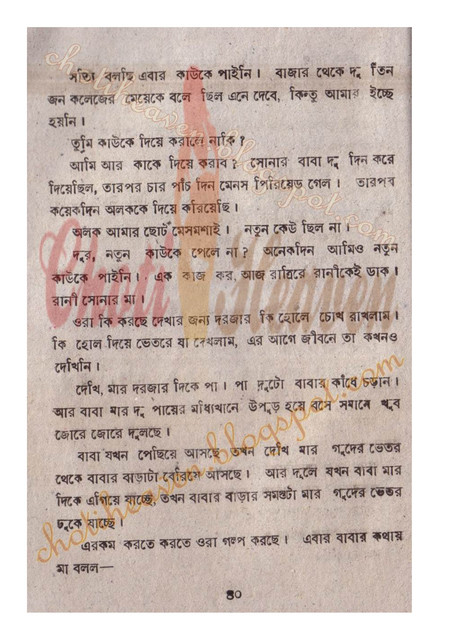 সত্যি বলছি এবার কাউকে পাইনি। বাজার থেকে দু তিন
জন কলেজের মেয়েকে বলে ছিল এনে দেবে, কিন্তু আমার ইচ্ছে
হয়নি।
তুমি কাউকে দিয়ে করালে নাকি?
আমি আর কাকে দিয়ে করাব? সোনার বাবা দু দিন করে
দিয়েছিল, তারপর চার পাঁচ দিন মেনস পিরিয়েড গেল। তারপর
কয়েকদিন অলককে দিয়ে করিয়েছি।
অলক আমার ছোট মেসমশাই। নতুন কেউ ছিল না।
দূর, নতুন কাউকে পেলে না? অনেকদিন আমিও নতুন
কাউকে পাইনি। এক কাজ কর, আজ রাত্রিরে রানীকেই ডাক।
রানী সোনার মা।
ওরা কি করছে দেখার জন্য দরজার কি হোলে চোখ রাখলাম।
কি হোল দিয়ে ভেতরে যা দেখলাম, এর আগে জীবনে তা কখনও
দেখিনি।
দেখি, মার দরজার দিকে পা। পা দুটো বাবার কাঁধে চড়ান।
আর বাবা মার দু পায়ের মধ্যিখানে উপুড় হয়ে বসে সমানে খুব
জোরে জোরে দুলছে।
বাবা যখন পেছিয়ে আসছে তখন দেখি মার গুদের ভেতর
থেকে বাবার বাড়াটা বেরিয়ে আসছে। আর দুলে যখন বাবা মার
দিকে এগিয়ে যাচ্ছে, তখন বাবার বাড়ার সমস্তটা মার গুদের ভেতর
ঢুকে যাচ্ছে।
এরকম করতে করতে ওরা গল্প করছে। এবার বাবার কথায়
মা বলল—
৪০
chotiheaven.blogspot.com
Choti Heaven
chotiheaven.blogspot.com